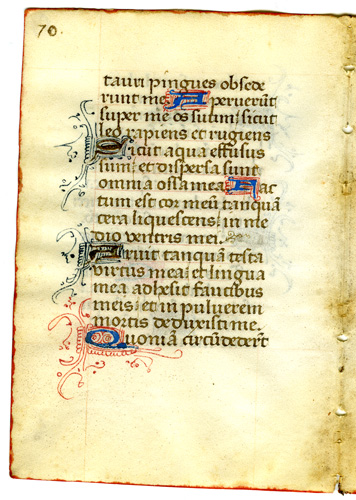 70.
tauri pingues obsede
runt me Aperuerũt
super me os suum sicut
leo rapiens et rugiens
Sicut aqua effusus
sum et dispersa sunt
omnia ossa mea Fac
tum est cor meũ tanquã
cera liquescens in me
dio ventris mei.
Aruit tanquã testa
virtus mea et lingua
mea adhesit faucibus
meis et in pulverem
mortis deduxisti me.
Quoniã circũdederũt